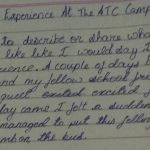 Experience At The ATC Camp
to describe or share what
like like I would say I
ience. A couple of days b
nd my fellow school pre
quiet excited excited f
day came I felt a sudden
managed to put this feelin
on the bus.